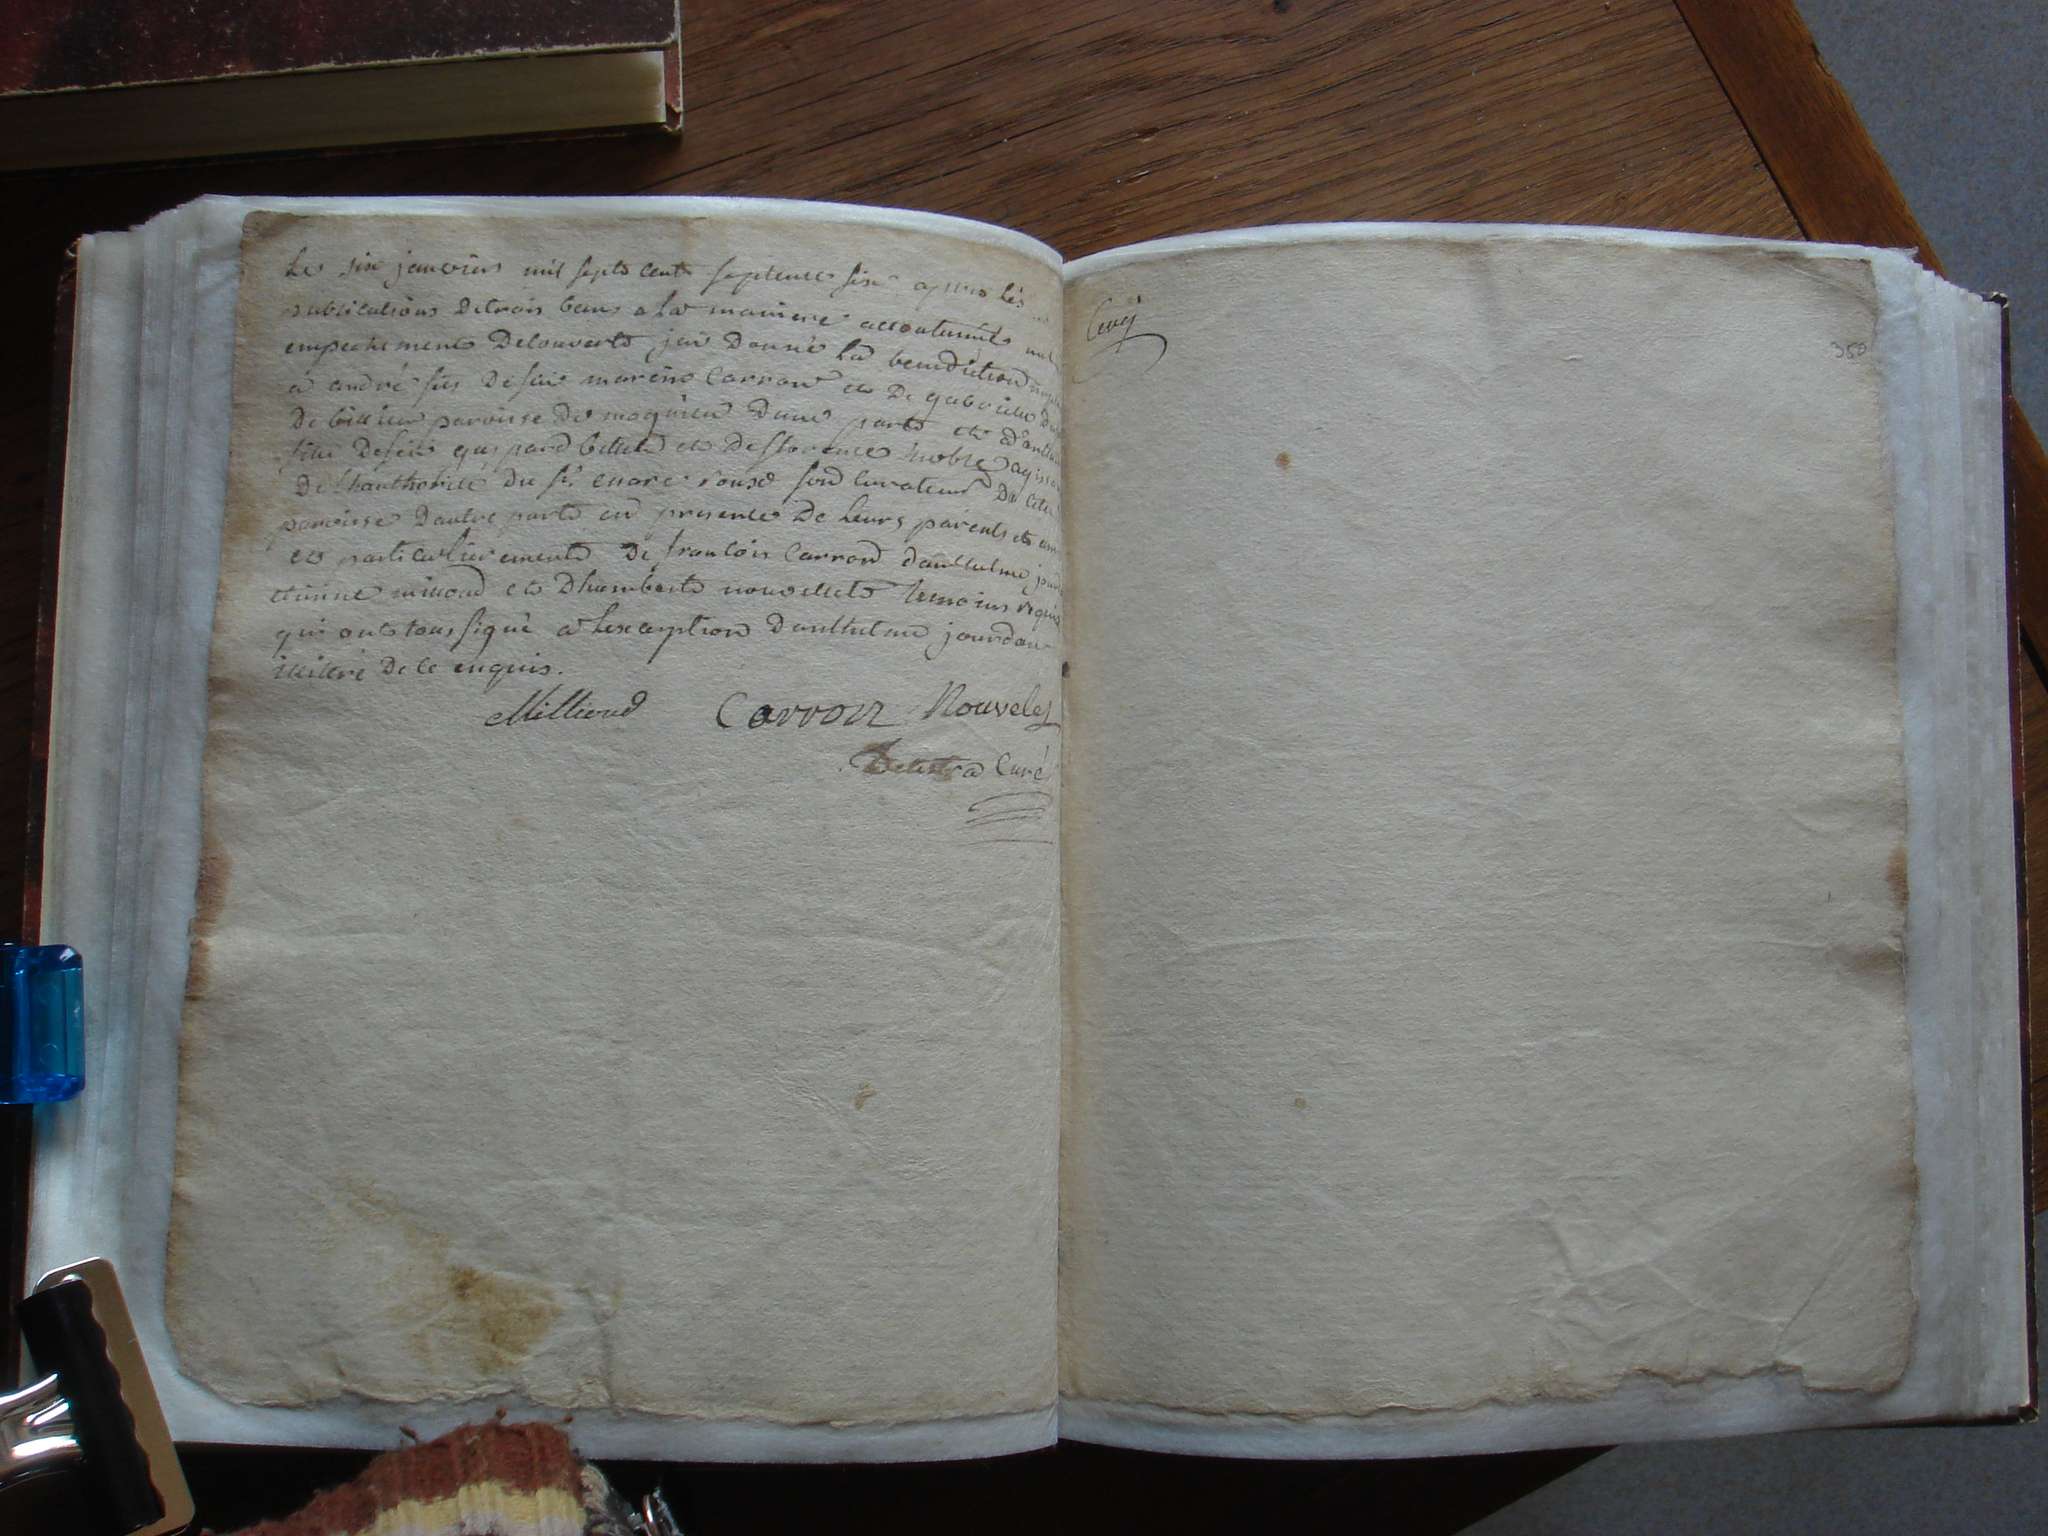 Le six janvier mil sept cent septente six apres les
publications de trois bans a la maniere accoutumée nul
empechement decouvert jai donné la benediction
a andré fils de feu Carron et de gabrielle
De billieu paroisse de magnieu dune part et
fille de feu gaspard billiet et de florence agissant
De lhauthorité du sr. son curateur De cette
paroisse dautre part en presence de leurs parents et
et particulierement de francois Carron danthelme
etienne milliond et dhumbert nouvellet temoins requis
qui ont tous signé a lexception danthelme jourdan
illitéré de ce enquis.
Milliond Carron Nouvelet
Curé
Cevoj
350